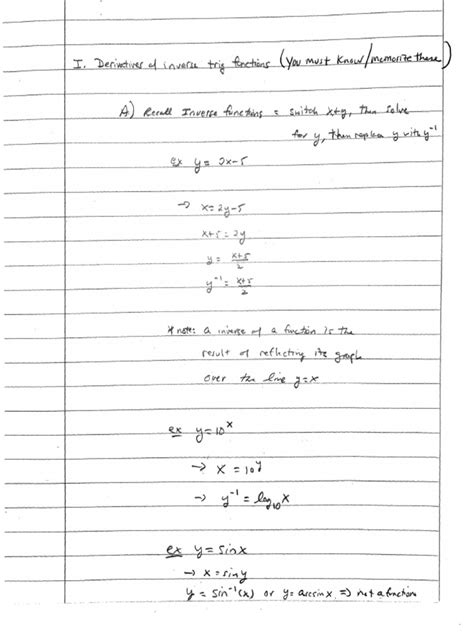 I. Derivatives of inverse trig functions (You must know/memorize these)
A) Recall Inverse functions = switch x+y, then solve
for y, then replace y with y⁻¹
ex y = 2x-5
→ x = 2y-5
x+5 = 2y
y = x+5/2
y⁻¹ = x+5/2
* note: a inverse of a function is the
result of reflecting its graph
over the line y=x
ex y = 10ˣ
→ x = 10ʸ
→ y⁻¹ = log₁₀x
ex y = sinx
→ x = siny
y = sin⁻¹(x) or y = arcsinx => not a function